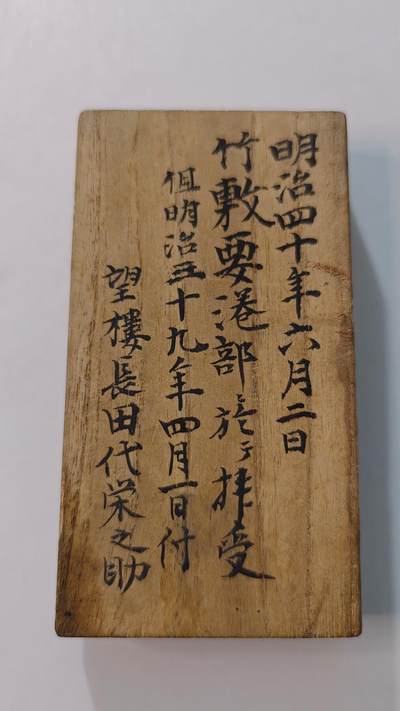 明治四十年六月二日
竹敷要港部於テ拝受
但明治三十九年四月一日付
望樓長田代栄之助